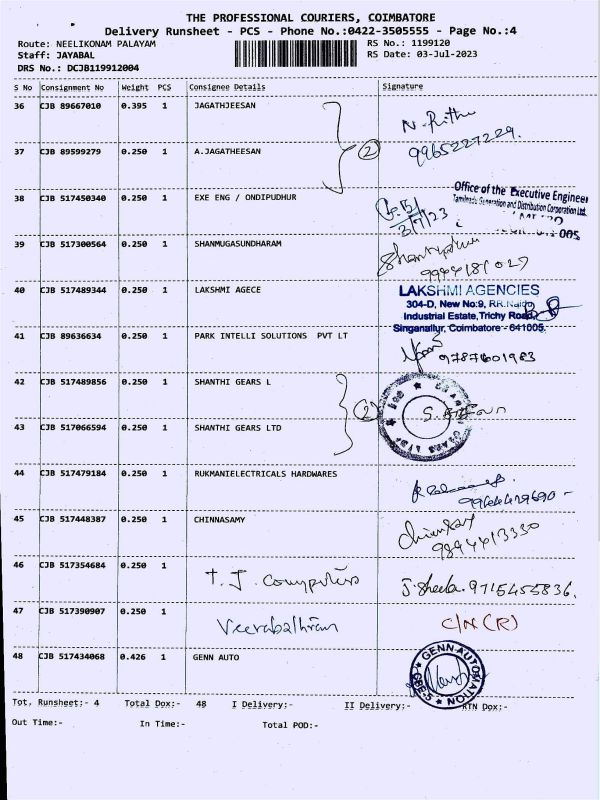 THE PROFESSIONAL COURIERS, COIMBATORE
Delivery Runsheet - PCS - Phone No.:0422-3505555 - Page No.:4
Route: NEELIKONAM PALAYAM
RS No.: 1199120
Staff: JAYABAL
RS Date: 03-Jul-2023
DRS No.: DCJB119912004
S No Consignment No Weight PCS Consignee Details Signature
36 CJB 89667010 0.395 1 JAGATHJEESAN
N. Rithu
9965227229.
2
37 CJB 89599279 0.250 1 A.JAGATHEESAN
38 CJB 517450340 0.250 1 EXE ENG / ONDIPUDHUR
Office of the Executive Engineer
Tamilnadu Generation and Distribution Corporation Ltd.
3/7/23
005
39 CJB 517300564 0.250 1 SHANMUGASUNDHARAM
40 CJB 517489344 0.250 1 LAKSHMI AGECE
LAKSHMI AGENCIES
304-D, New No:9, RR.Naidu
Industrial Estate,Trichy Road,
Singanallur, Coimbatore - 641005.
41 CJB 89636634 0.250 1 PARK INTELLI SOLUTIONS PVT LT
9787601983
42 CJB 517489856 0.250 1 SHANTHI GEARS L
2
43 CJB 517066594 0.250 1 SHANTHI GEARS LTD
44 CJB 517479184 0.250 1 RUKMANIELECTRICALS HARDWARES
45 CJB 517448387 0.250 1 CHINNASAMY
9894413330
46 CJB 517354684 0.250 1 T. J. Computers J. Sheela. 9715455836.
47 CJB 517390907 0.250 1 Veerabathiran C/N (R)
48 CJB 517434068 0.426 1 GENN AUTO
GENN AUTOMATION
CBE-5
Tot, Runsheet:- 4 Total Dox:- 48 I Delivery:- II Delivery:- RTN Dox:-
Out Time:- In Time:- Total POD:-